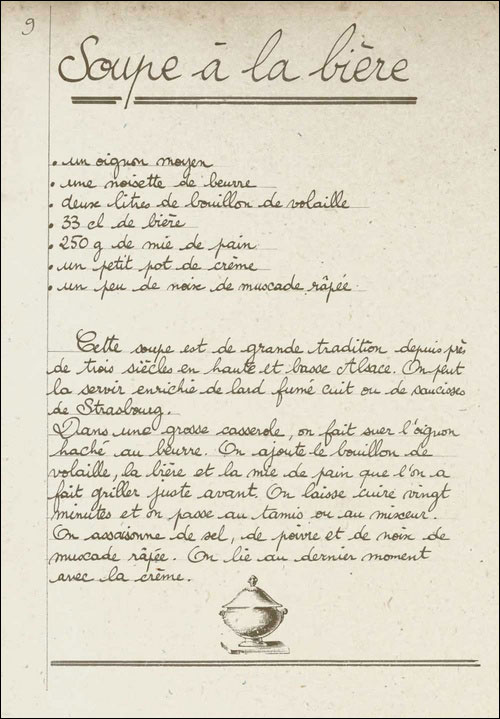 9
Soupe à la bière
• un oignon moyen
• une noisette de beurre
• deux litres de bouillon de volaille
• 33 cl de bière
• 250 g de mie de pain
• un petit pot de crème
• un peu de noix de muscade râpée.
Cette soupe est de grande tradition depuis près
de trois siècles en haute et basse Alsace. On peut
la servir enrichie de lard fumé cuit ou de saucisses
de Strasbourg.
Dans une grosse casserole, on fait suer l'oignon
haché au beurre. On ajoute le bouillon de
volaille, la bière et la mie de pain que l'on a
fait griller juste avant. On laisse cuire vingt
minutes et on passe au tamis ou au mixeur.
On assaisonne de sel, de poivre et de noix de
muscade râpée. On lie au dernier moment
avec la crème.